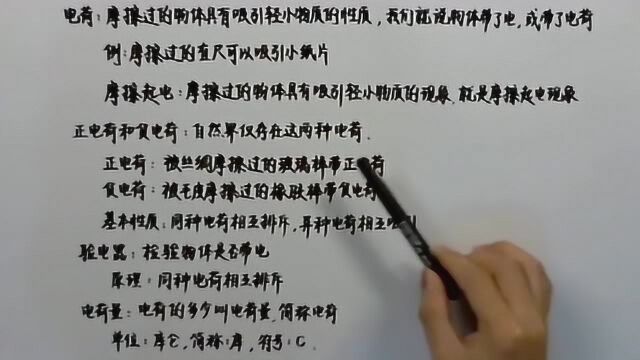 电荷：摩擦过的物体具有吸引轻小物质的性质，我们就说物体带了电，或带了电荷
例：摩擦过的直尺可以吸引小纸片
摩擦起电：摩擦过的物体具有吸引轻小物质的现象，就是摩擦起电现象
正电荷和负电荷：自然界仅存在这两种电荷.
正电荷：被丝绸摩擦过的玻璃棒带正荷
负电荷：被毛皮摩擦过的橡胶棒带负电荷
基本性质：同种电荷相互排斥，异种电荷相互吸引
验电器：检验物体是否带电
原理：同种电荷相互排斥
电荷量：电荷的多少叫电荷量，简称电荷
单位：库仑，简称：库，符号：C.